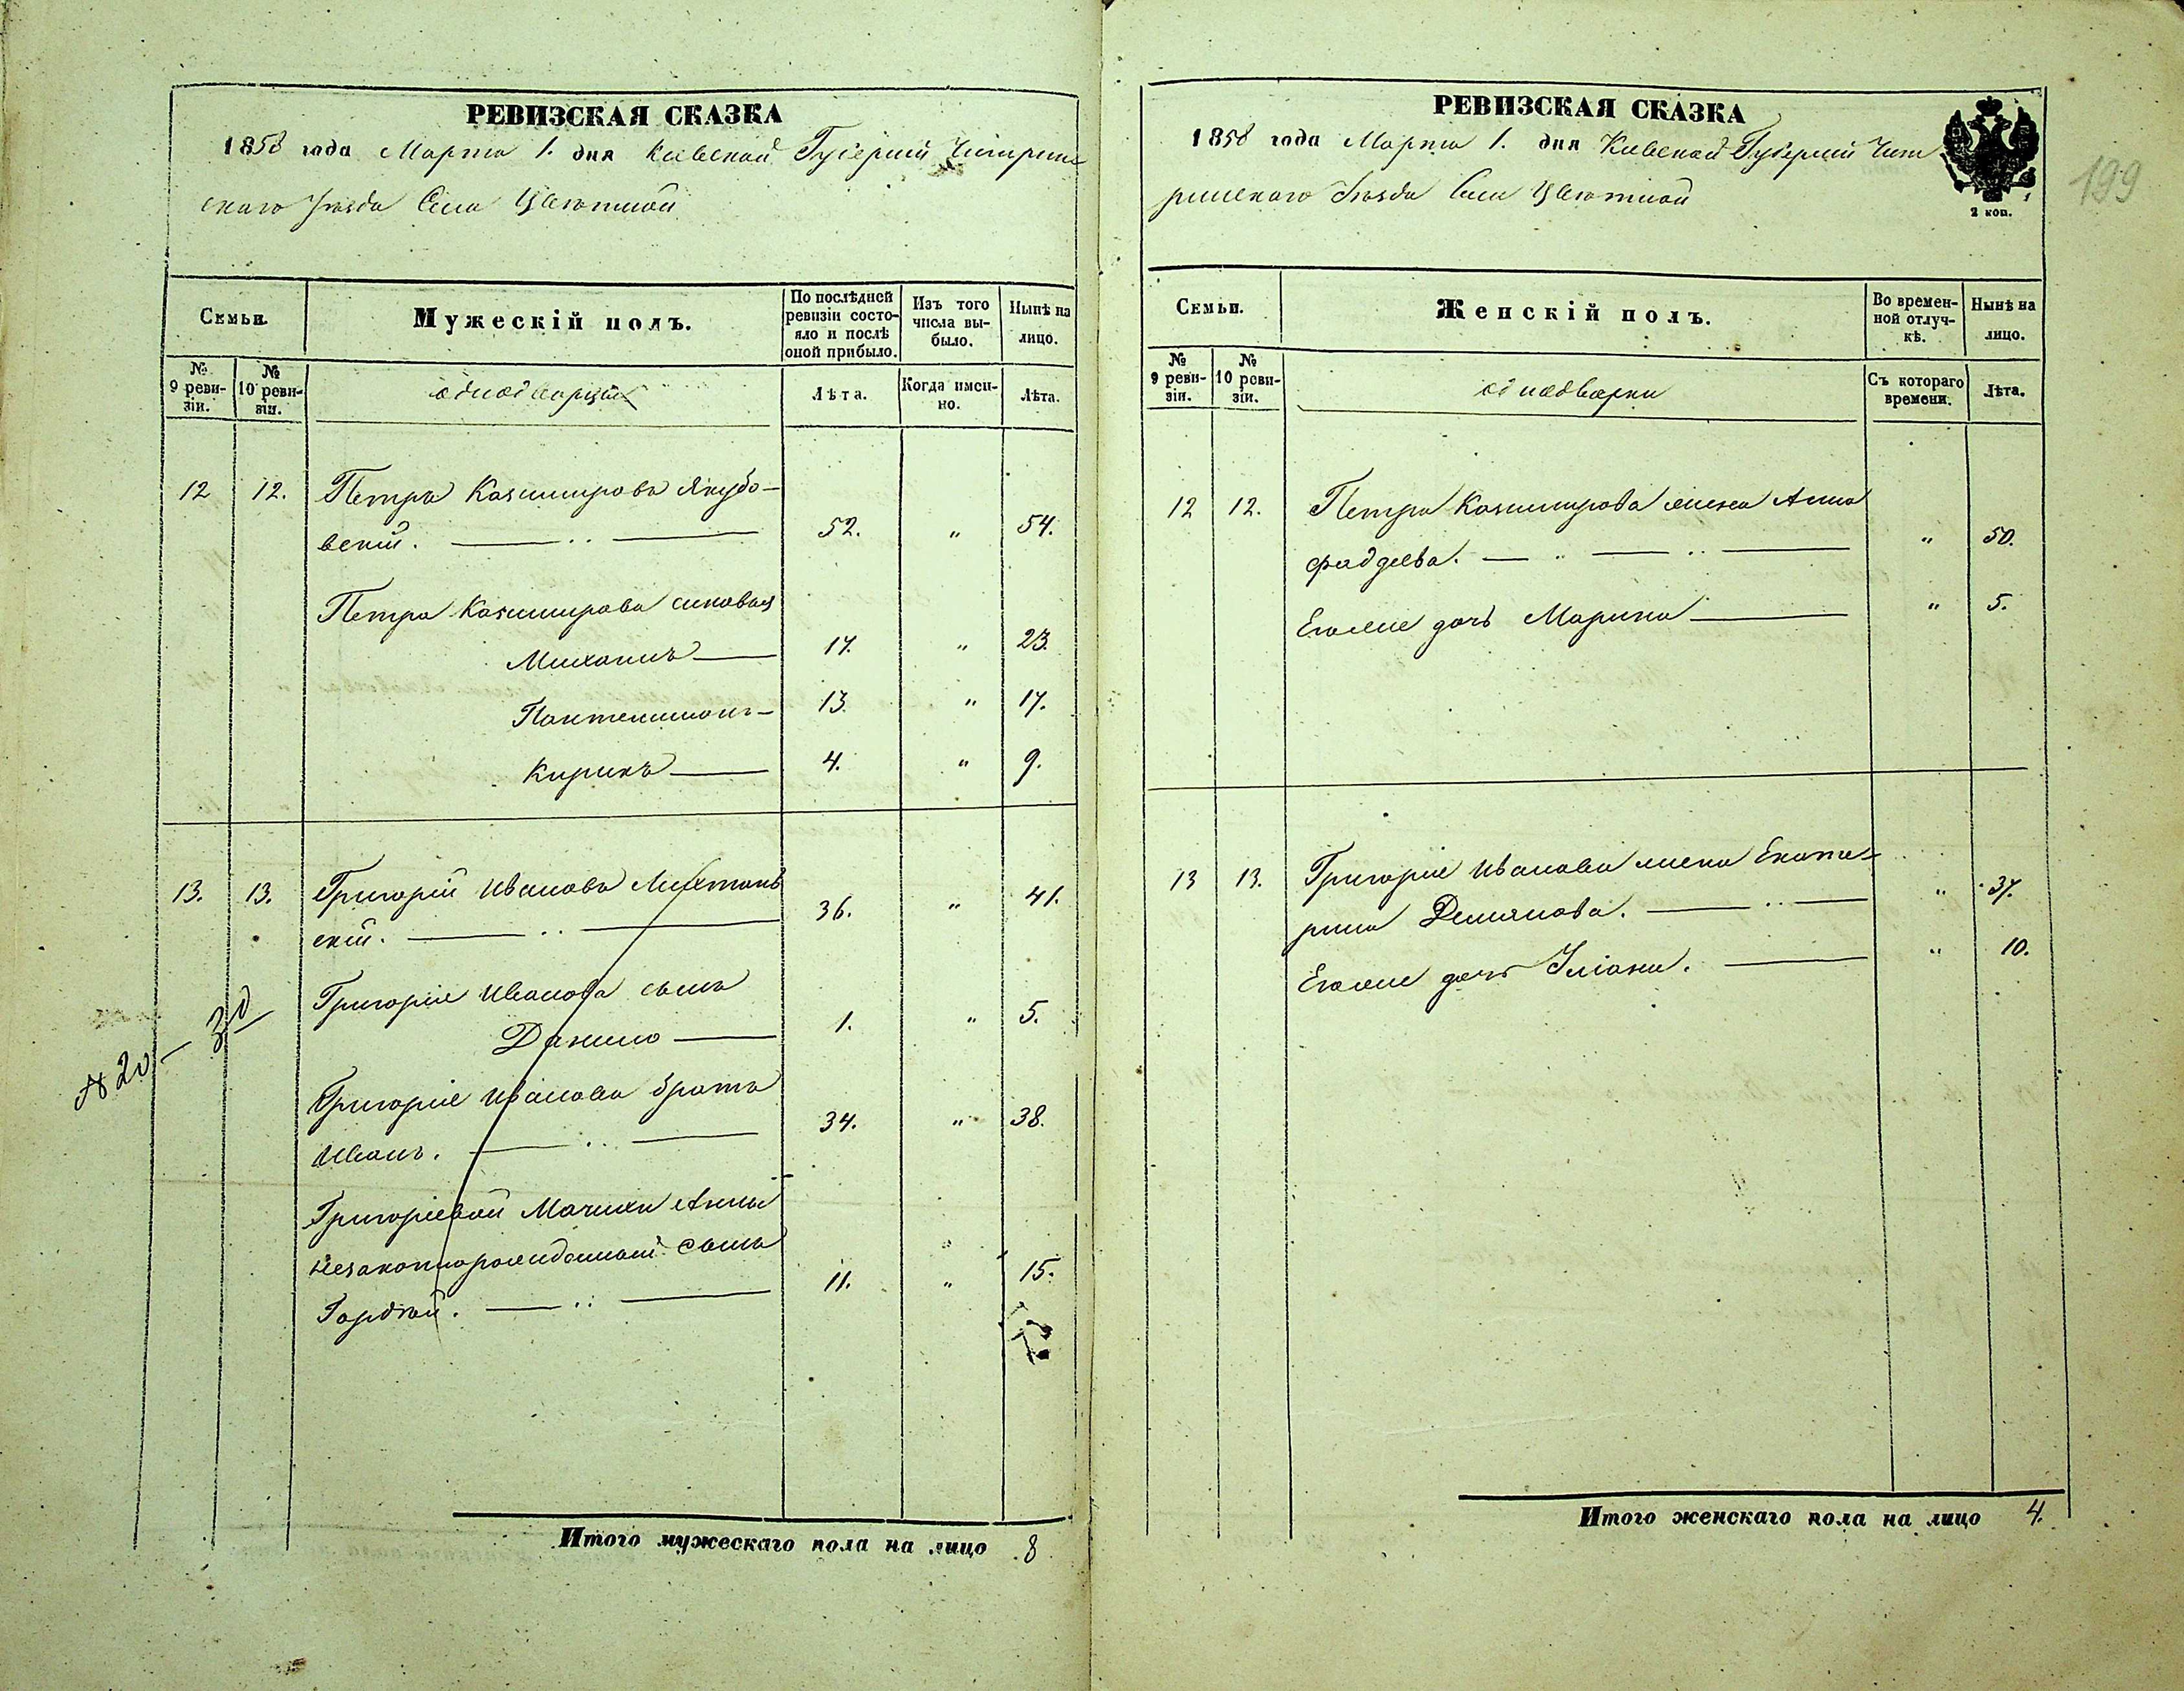 РЕВИЗСКАЯ СКАЗКА
1858 года Марта 1. дня Киевской Губернiи Чигрин
скаго Уѣзда Села Цвѣтной
Семьи.
Мужескiй полъ.
По послѣдней ревизiи состояло и послѣ оной прибыло.
Изъ того числа вы-было.
Нынѣ на лицо.
№ 9 реви-зiи.
№ 10 реви-зiи.
однодворцы
Лѣта.
Когда имен-но.
Лѣта.
12 12. Петръ Казимировъ Якубо-
вскiй. 52. " 54.
Петра Казимирова сыновья
Михаилъ 17. " 23.
Пантелимонъ 13. " 17.
Кирикъ 4. " 9.
13. 13. Григорiй Ивановъ
скiй. 36. " 41.
Григорiя Иванова сынъ
Данило 1. " 5.
Григорiя Иванова братъ
Иванъ. 34. " 38.
Григорiевой Мачихи Анны
незаконнорожденный сынъ
Гордѣй. 11. " 15.
№ 20 – 30
Итого мужескаго пола на лицо 8
РЕВИЗСКАЯ СКАЗКА
1858 года Марта 1. дня Киевской Губернiи Чиг
ринскаго Уѣзда Села Цвѣтной
2 коп.
199
Семьи.
Женскiй полъ.
Во времен-ной отлуч-кѣ.
Нынѣ на лицо.
№ 9 реви-зiи.
№ 10 реви-зiи.
однодворки
Съ котораго времени.
Лѣта.
12 12. Петра Казимирова жена Анна
Фадеева. " 50.
Егожъ дочь Марина " 5.
13 13. Григорiя Иванова жена Екате-
рина Демянова. " 37.
Егожъ дочь Улiана. " 10.
Итого женскаго пола на лицо 4.